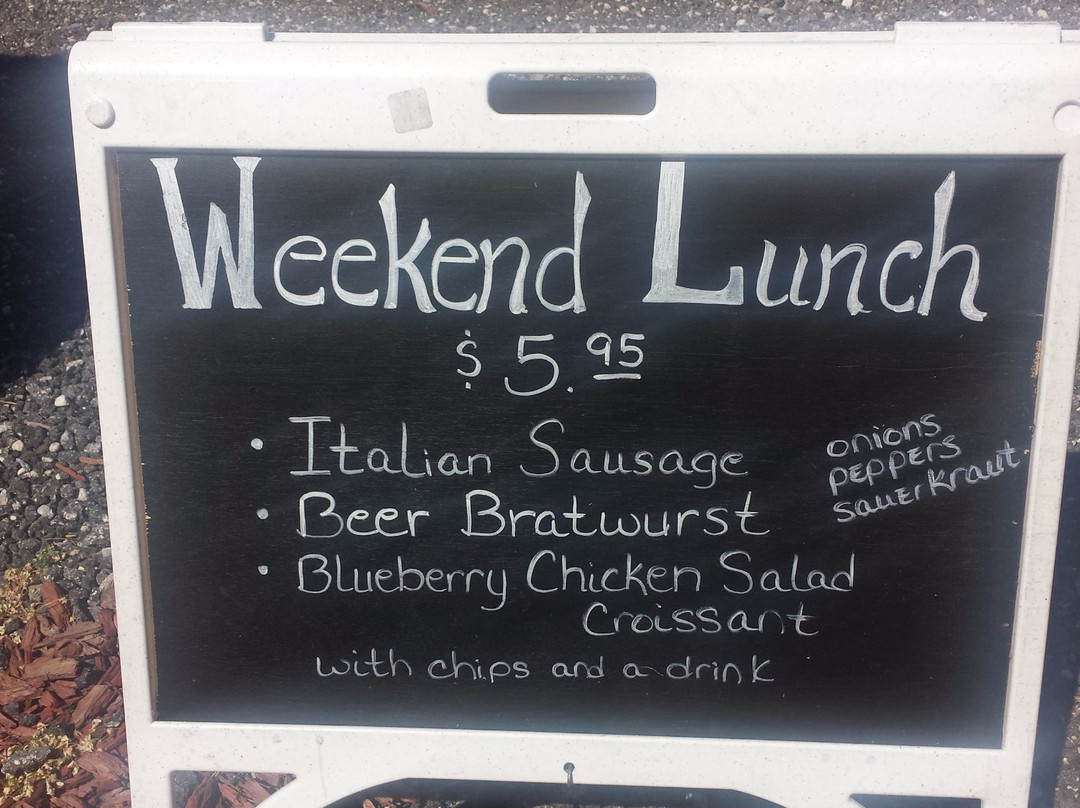 Weekend Lunch
$5.95
• Italian Sausage
• Beer Bratwurst
onions
peppers
sauerkraut
• Blueberry Chicken Salad
Croissant
with chips and a drink